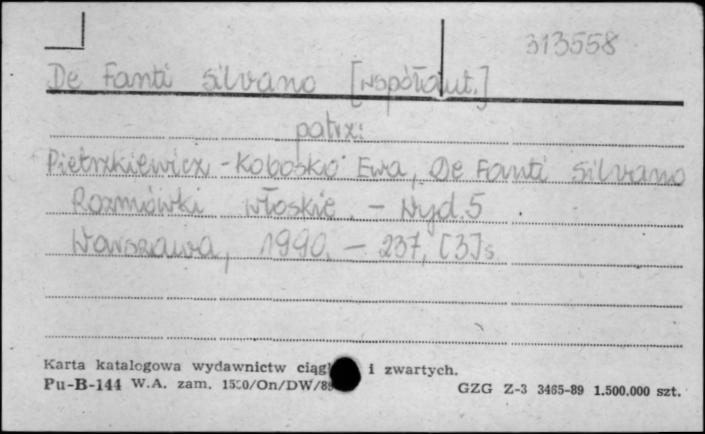 313558
De Fanti Silvano [współaut.]
patrz:
Pietrzkiewicz-Kobosko Ewa, De Fanti Silvano
Rozmówki włoskie. - Wyd. 5
Warszawa, 1990. - 237, [3] s
Karta katalogowa wydawnictw ciągł i zwartych.
Pu-B-144 W.A. zam. 1550/On/DW/89
GZG Z-3 3465-89 1.500.000 szt.